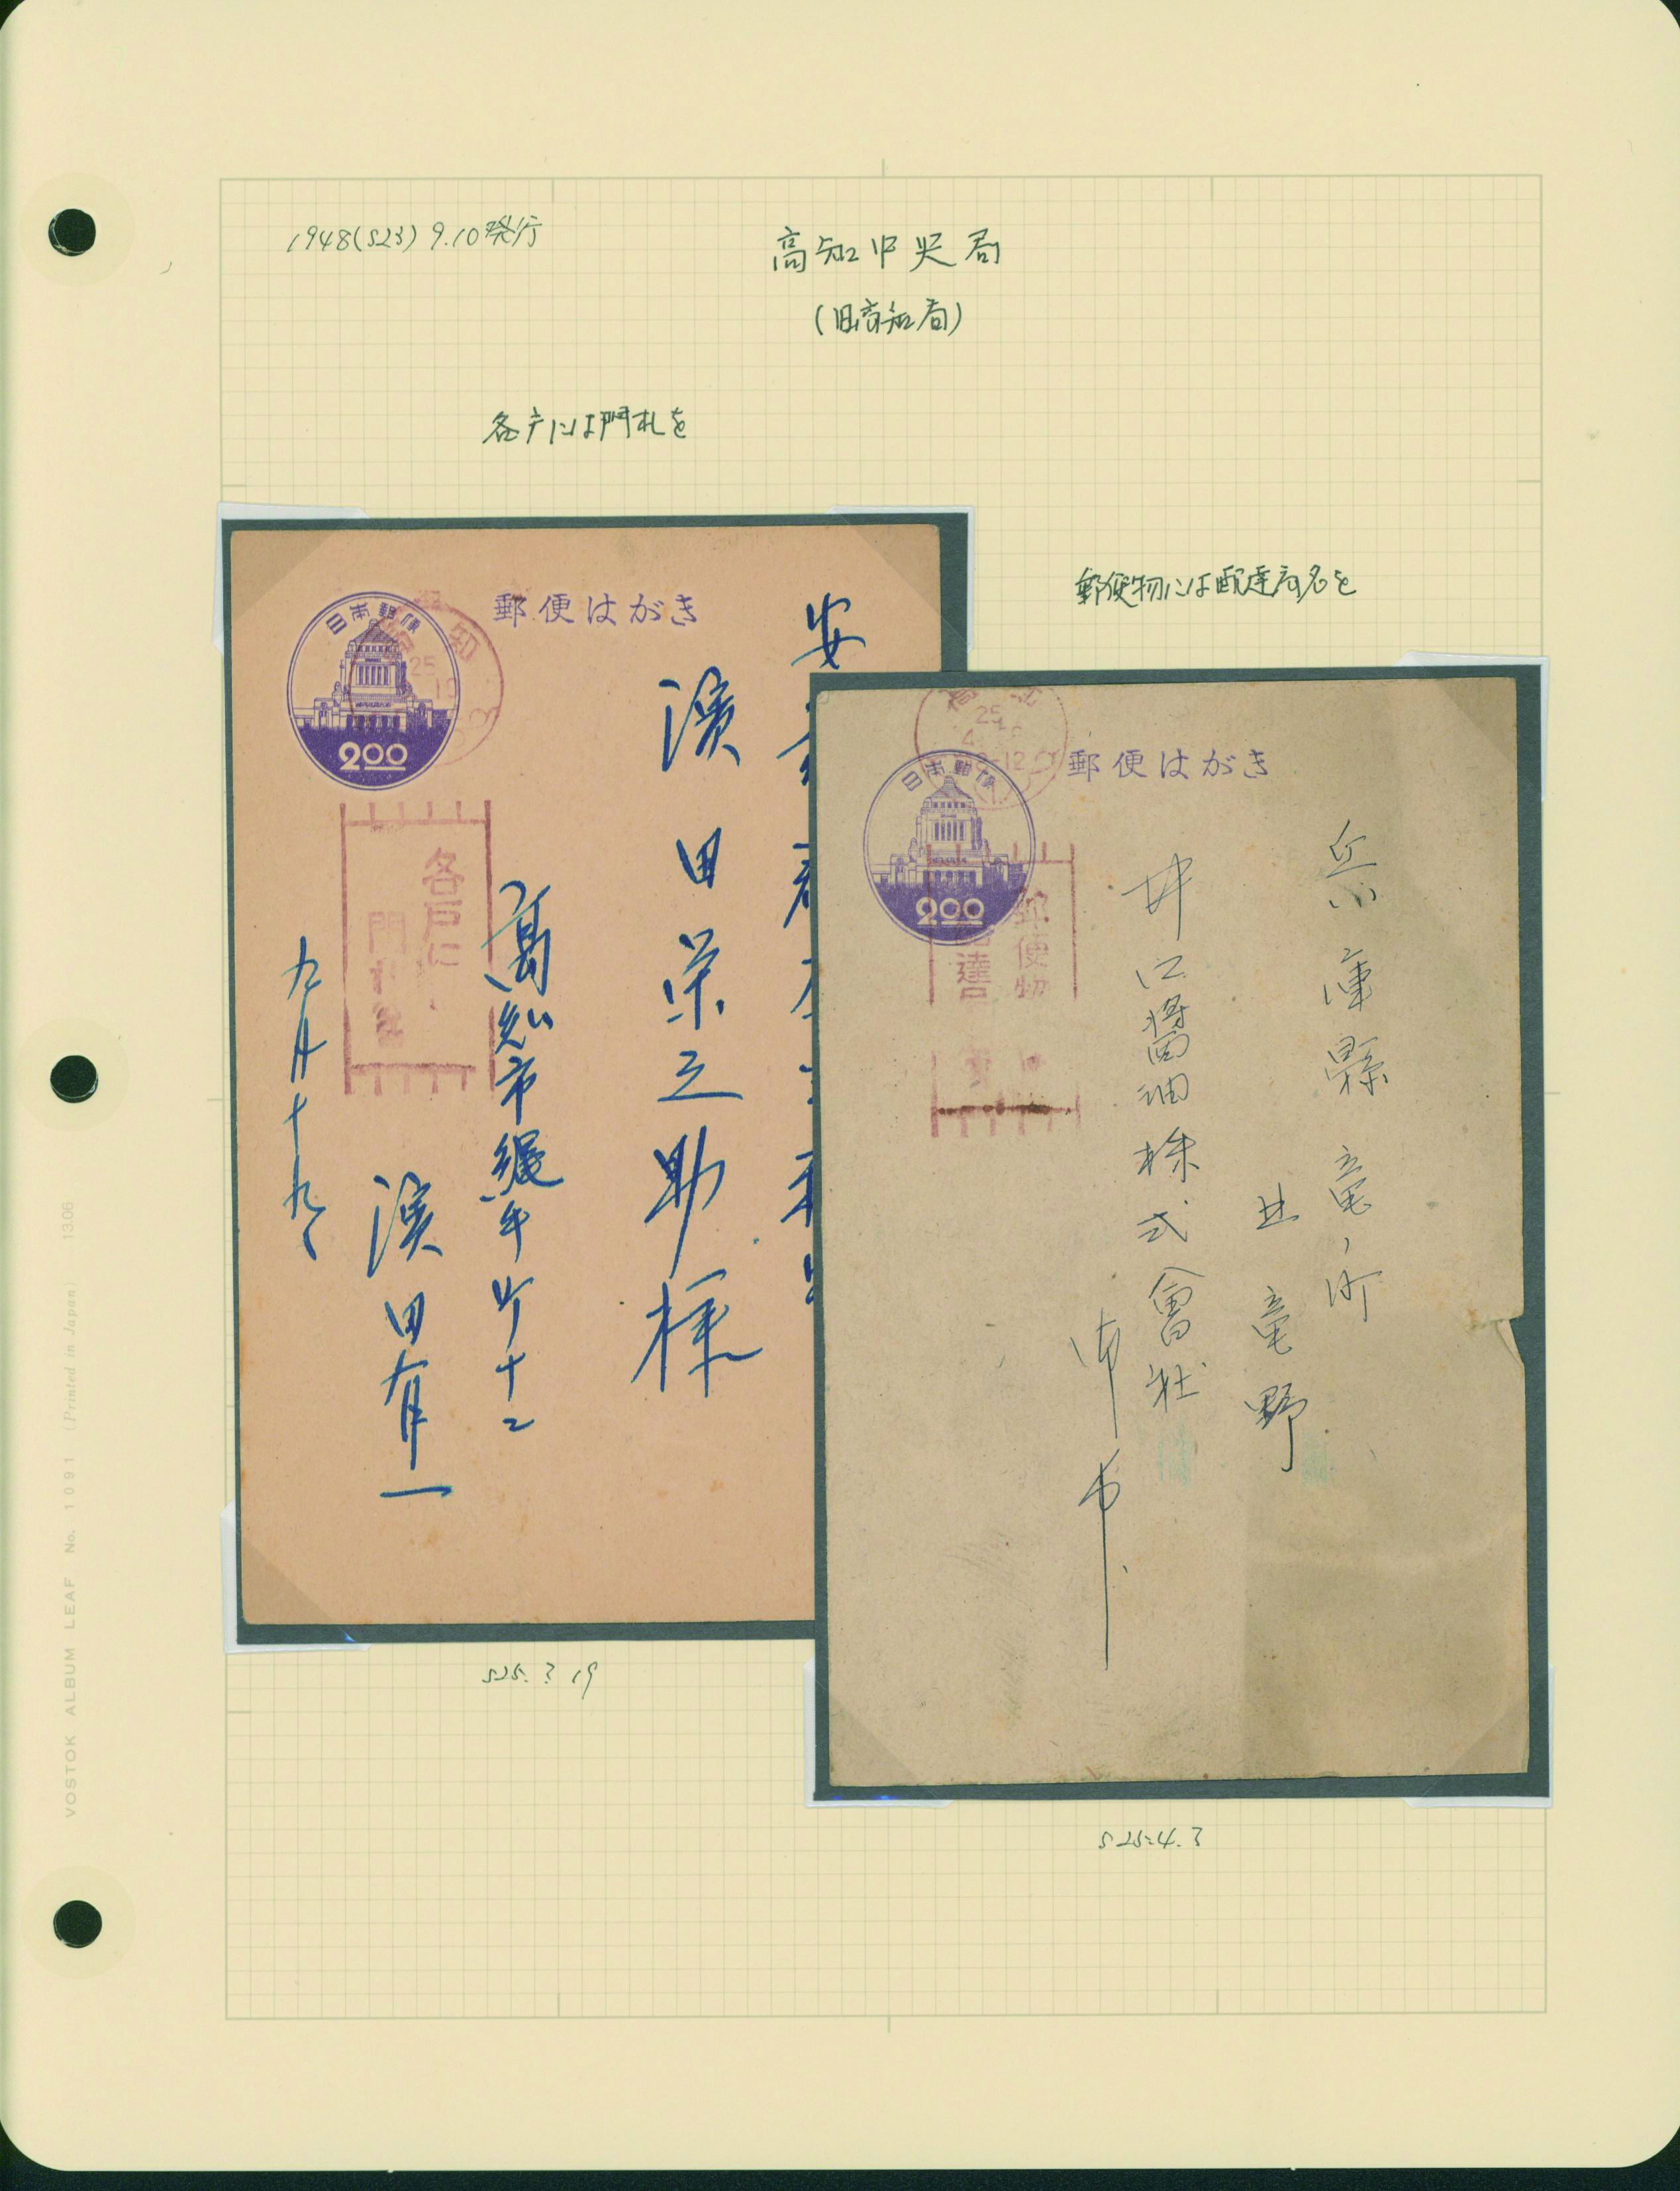 1948(S23) 9.10発行
高知中央局
(旧高知局)
各戸には門札を
郵便物には配達局名を
郵便はがき
日本郵便
2.00
知
25
各戸に
門札を
安
濱田栄之助様
高知市
町十二
濱田有一
九月十九
郵便はがき
高知
25
4
-12
日本郵便
2.00
郵便物
配達
兵庫縣
竜野
醤油株式會社
S25.?.19
S25.4.?
VOSTOK ALBUM LEAF No. 1091 (Printed in Japan) 1306